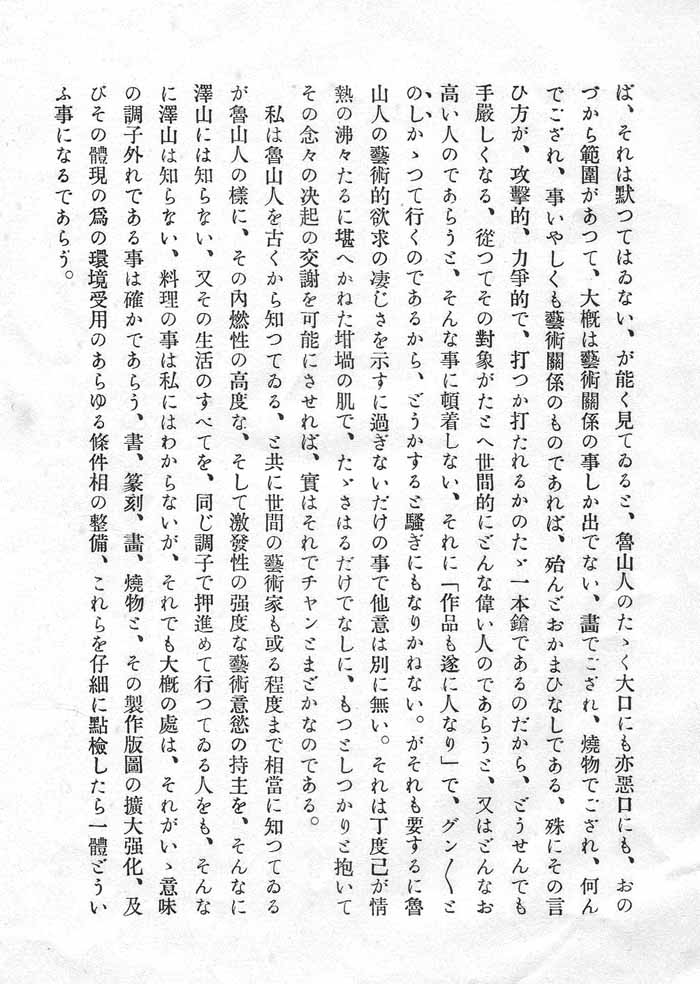 ば、それは默つてはゐない、が能く見てゐると、魯山人のたゝく大口にも亦惡口にも、おの
づから範圍があつて、大槪は藝術關係の事しか出でない、畫でござれ、燒物でござれ、何ん
でござれ、事いやしくも藝術關係のものであれば、殆んどおかまひなしである、殊にその言
ひ方が、攻擊的、力爭的で、打つか打たれるかのたゞ一本鎗であるのだから、どうせんでも
手嚴しくなる、從つてその對象がたとへ世間的にどんな偉い人のであらうと、又はどんなお
高い人のであらうと、そんな事に頓着しない、それに「作品も遂に人なり」で、グン〳〵と
のしかゝつて行くのであるから、どうかすると騷ぎにもなりかねない。がそれも要するに魯
山人の藝術的欲求の凄じさを示すに過ぎないだけの事で他意は別に無い。それは丁度己が情
熱の沸々たるに堪へかねた坩堝の肌で、たゞさはるだけでなしに、もつとしつかりと抱いて
その念々の決起の交謝を可能にさせれば、實はそれでチャンとまどかなのである。
私は魯山人を古くから知つてゐる、と共に世間の藝術家も或る程度まで相當に知つてゐる
が魯山人の樣に、その內燃性の高度な、そして激發性の强度な藝術意慾の持主を、そんなに
澤山には知らない、又その生活のすべてを、同じ調子で押進めて行つてゐる人をも、そんな
に澤山は知らない、料理の事は私にはわからないが、それでも大槪の處は、それがいゝ意味
の調子外れである事は確かであらう、書、篆刻、畫、燒物と、その製作版圖の擴大强化、及
びその體現の爲の環境受用のあらゆる條件相の整備、これらを仔細に點檢したら一體どうい
ふ事になるであらう。